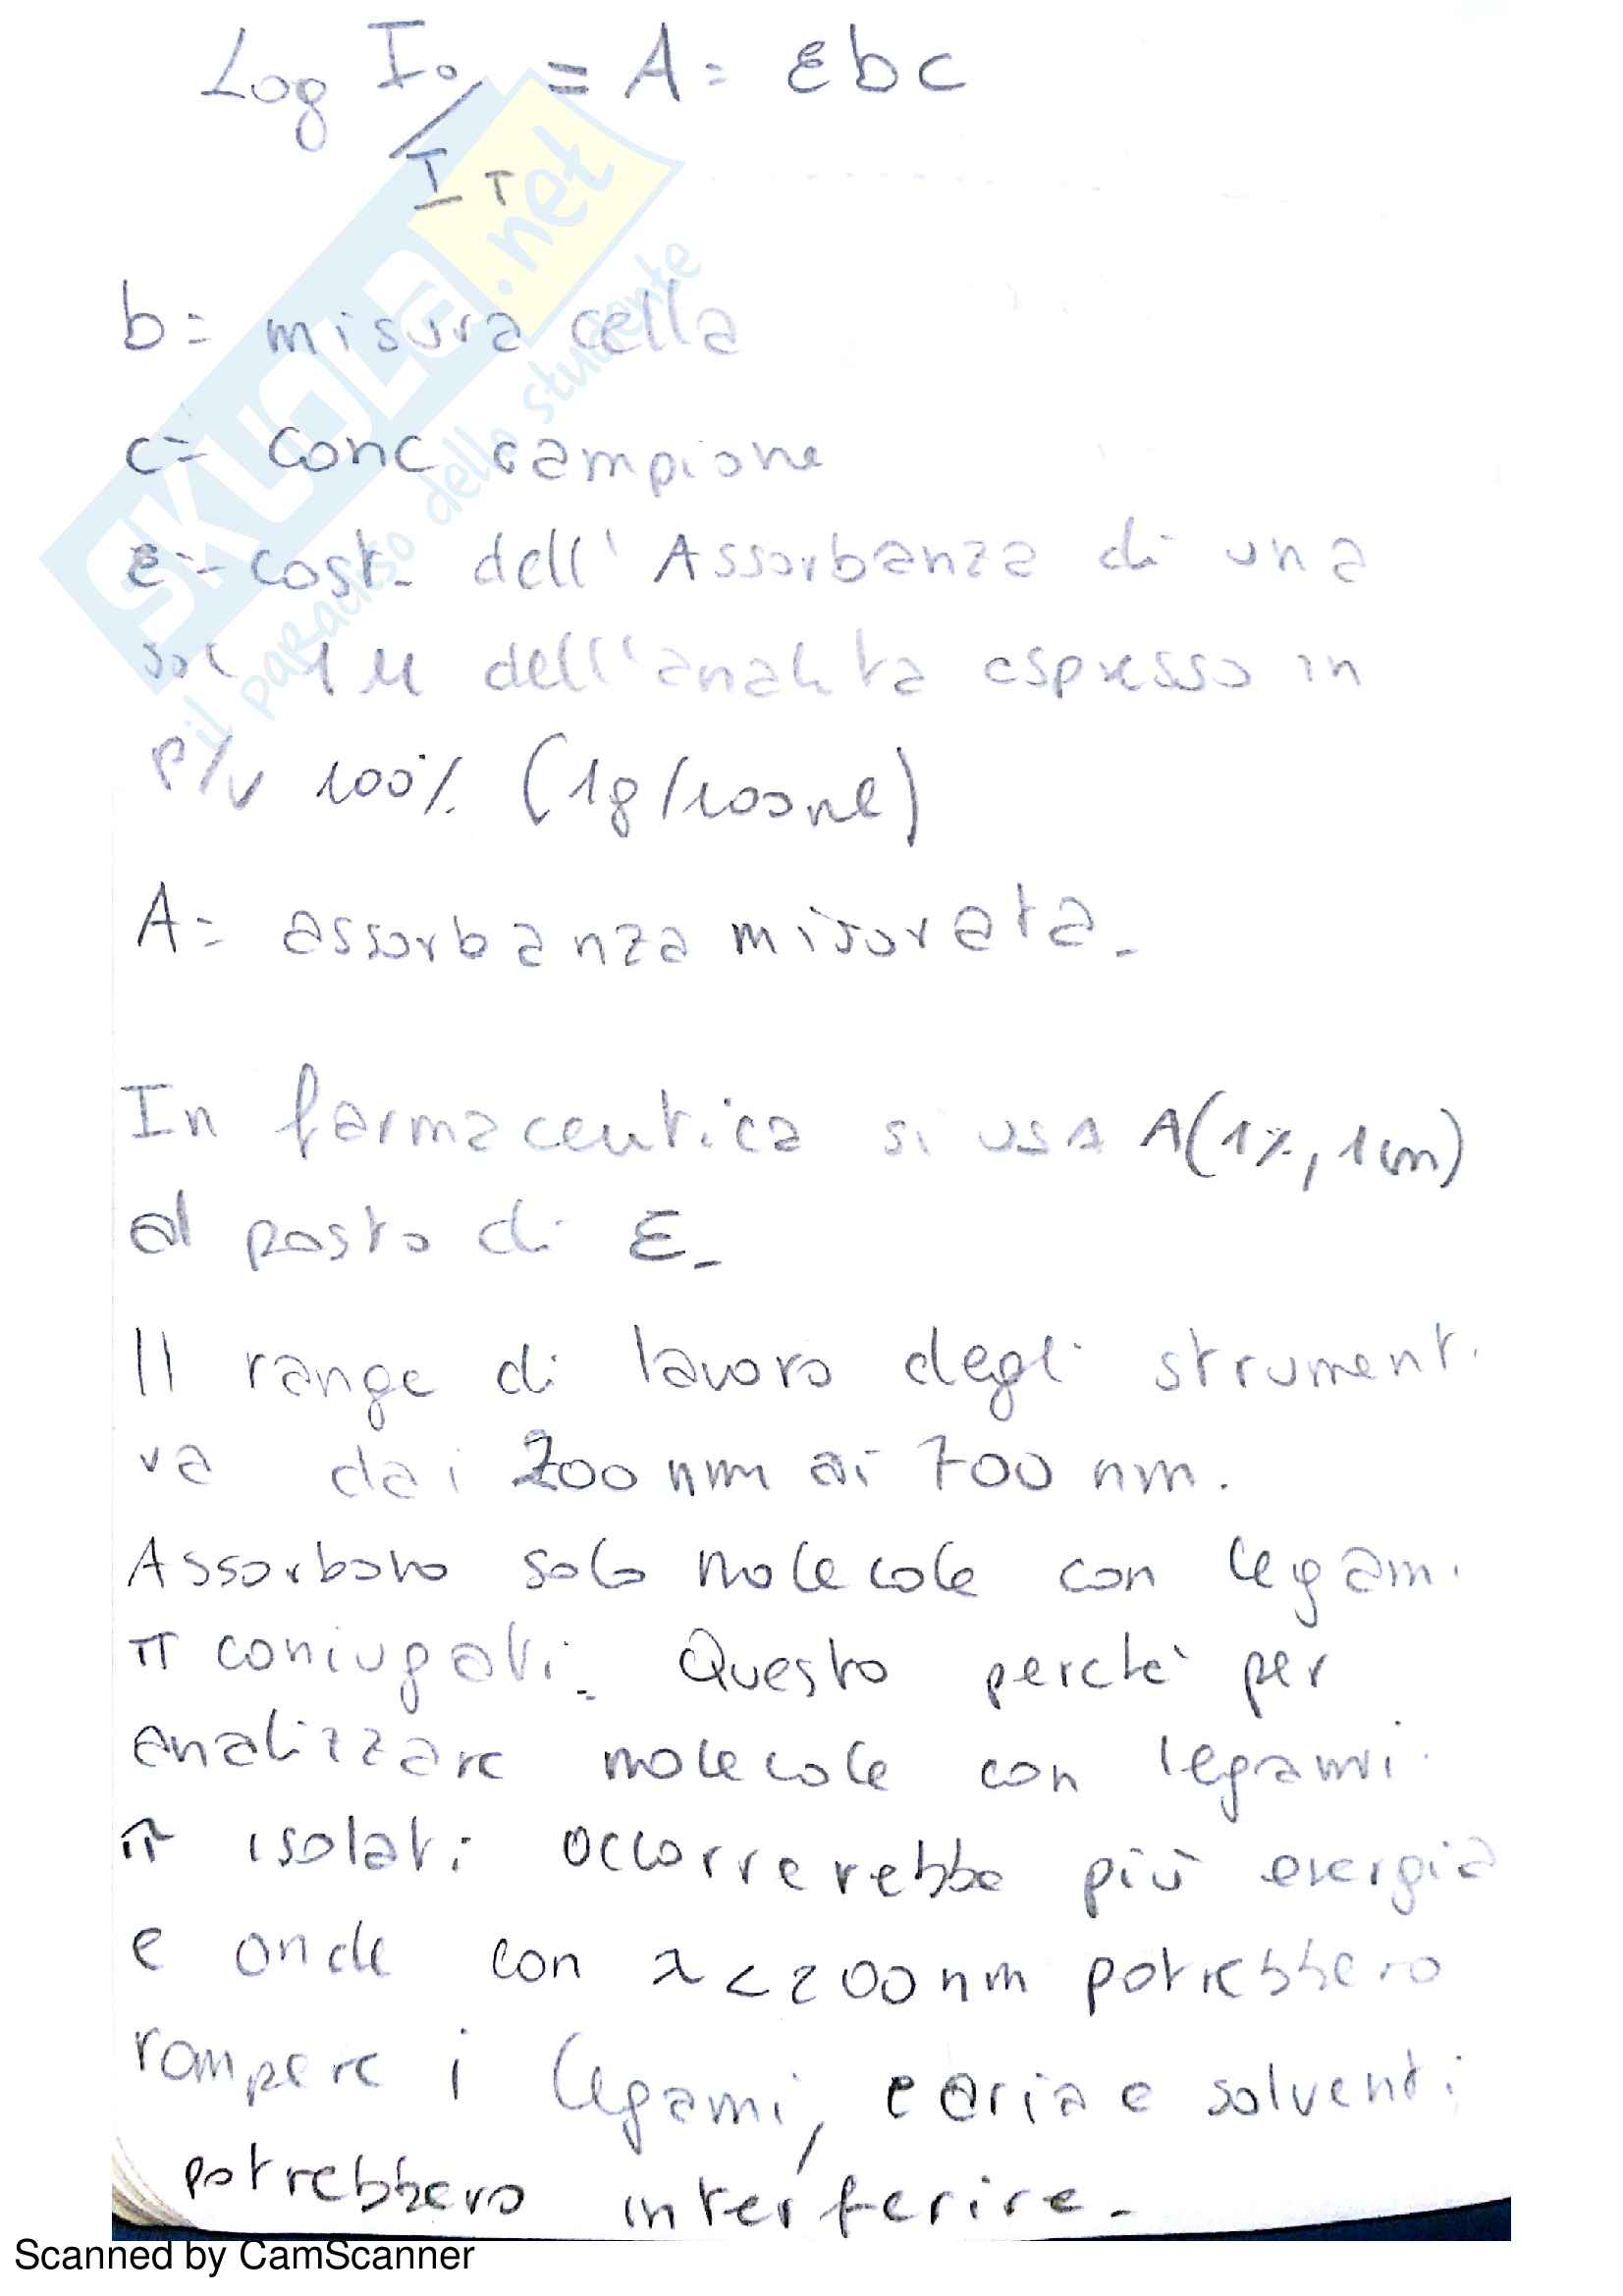 Log I₀/I_T = A = εbc
b= misura cella
c= conc campione
ε= cost. dell'Assorbanza di una
sol 1M dell'analita espresso in
P/v 100% (1g/100ml)
A= assorbanza misurata.
In farmaceutica si usa A(1%, 1cm)
al posto di ε.
Il range di lavoro degli strumenti
va dai 200 nm ai 700 nm.
Assorbono solo molecole con legami
π coniugati. Questo perchè per
analizzare molecole con legami
π isolati occorrerebbe più energia
e onde con λ<200nm potrebbero
rompere i legami, e aria e solventi
potrebbero interferire.
SKUOLA.net
il paradiso dello studente
Scanned by CamScanner